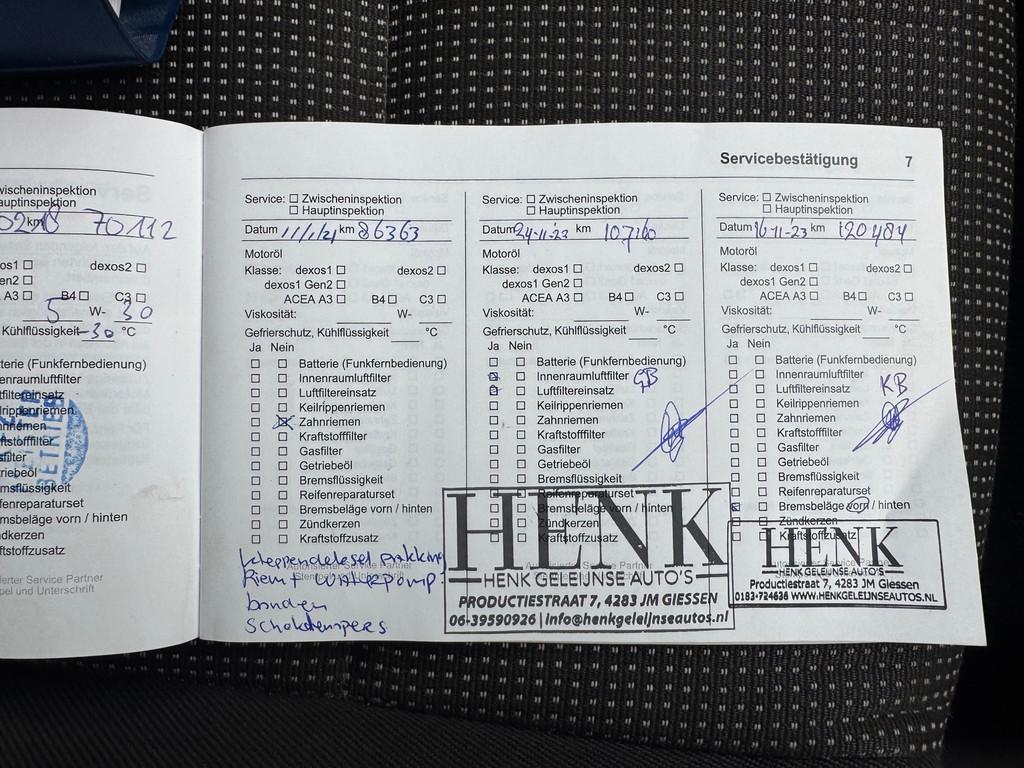 Servicebestätigung 7
wischeninspektion
auptinspektion
km 70112
os1 ☐ dexos2 ☐
en2 ☐
A3 ☐ B4 ☐ C3 ☐
5 W- 30
Kühlflüssigkeit -30 °C
terie (Funkfernbedienung)
enraumluftfilter
tfiltereinsatz
lrippenriemen
hnriemen
ftstofffilter
sfilter
riebeöl
msflüssigkeit
fenreparaturset
msbeläge vorn / hinten
dkerzen
ftstoffzusatz
BETRIEB
ierter Service Partner
pel und Unterschrift
Service: ☐ Zwischeninspektion
☐ Hauptinspektion
Datum 11/1/21 km 86363
Motoröl
Klasse: dexos1 ☐ dexos2 ☐
dexos1 Gen2 ☐
ACEA A3 ☐ B4 ☐ C3 ☐
Viskosität: W-
Gefrierschutz, Kühlflüssigkeit °C
Ja Nein
☐ ☐ Batterie (Funkfernbedienung)
☐ ☐ Innenraumluftfilter
☐ ☐ Luftfiltereinsatz
☐ ☐ Keilrippenriemen
☐ ☒ Zahnriemen
☐ ☐ Kraftstofffilter
☐ ☐ Gasfilter
☐ ☐ Getriebeöl
☐ ☐ Bremsflüssigkeit
☐ ☐ Reifenreparaturset
☐ ☐ Bremsbeläge vorn / hinten
☐ ☐ Zündkerzen
☐ ☐ Kraftstoffzusatz
Riem + waterpomp
banden
Schokdempers
Service: ☐ Zwischeninspektion
☐ Hauptinspektion
Datum 24-11-23 km 107160
Motoröl
Klasse: dexos1 ☐ dexos2 ☐
dexos1 Gen2 ☐
ACEA A3 ☐ B4 ☐ C3 ☐
Viskosität: W-
Gefrierschutz, Kühlflüssigkeit °C
Ja Nein
☐ ☐ Batterie (Funkfernbedienung)
☒ ☐ Innenraumluftfilter GB
☒ ☐ Luftfiltereinsatz
☐ ☐ Keilrippenriemen
☐ ☐ Zahnriemen
☐ ☐ Kraftstofffilter
☐ ☐ Gasfilter
☐ ☐ Getriebeöl
☐ ☐ Bremsflüssigkeit
☐ ☐ Reifenreparaturset
☐ ☐ Bremsbeläge vorn / hinten
☐ ☐ Zündkerzen
☐ ☐ Kraftstoffzusatz
HENK
HENK GELEIJNSE AUTO'S
PRODUCTIESTRAAT 7, 4283 JM GIESSEN
06-39590926 | info@henkgeleijnseautos.nl
Service: ☐ Zwischeninspektion
☐ Hauptinspektion
Datum 16-11-23 km 120484
Motoröl
Klasse: dexos1 ☐ dexos2 ☐
dexos1 Gen2 ☐
ACEA A3 ☐ B4 ☐ C3 ☐
Viskosität: W-
Gefrierschutz, Kühlflüssigkeit °C
Ja Nein
☐ ☐ Batterie (Funkfernbedienung)
☐ ☐ Innenraumluftfilter
☐ ☐ Luftfiltereinsatz KB
☐ ☐ Keilrippenriemen
☐ ☐ Zahnriemen
☐ ☐ Kraftstofffilter
☐ ☐ Gasfilter
☐ ☐ Getriebeöl
☐ ☐ Bremsflüssigkeit
☐ ☐ Reifenreparaturset
☒ ☐ Bremsbeläge vorn / hinten
☐ ☐ Zündkerzen
☐ ☐ Kraftstoffzusatz
HENK
HENK GELEIJNSE AUTO'S
Productiestraat 7, 4283 JM Giessen
0183-724636 WWW.HENKGELEIJNSEAUTOS.NL